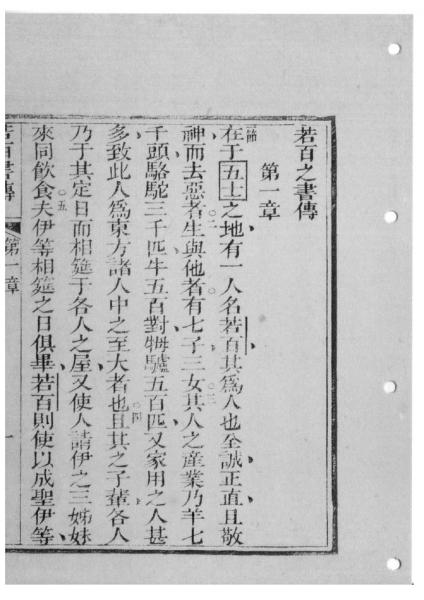 若百之書傳
第一章
一節在于五士之地有一人名若百其爲人也至誠正直且敬
神而去惡者○二生與他者有七子三女○三其人之產業乃羊七
千頭駱駝三千匹牛五百對牸驢五百匹又家用之人甚
多致此人爲東方諸人中之至大者也○四且其之子輩各人
乃于其定日而相筵于各人之屋又使人請伊之三姊妹
來同飲食○五夫伊等相筵之日俱畢若百則使以成聖伊等
若百書傳 第一章 一